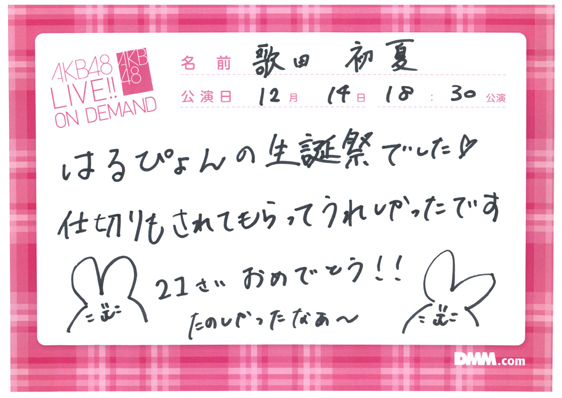 AKB48
LIVE!!
ON DEMAND
AKB
48
名前 歌田 初夏
公演日 12月 14日 18:30公演
はるぴょんの生誕祭でした♡
仕切りもされてもらってうれしかったです
21さい おめでとう!!
たのしかったなぁ〜
DMM.com